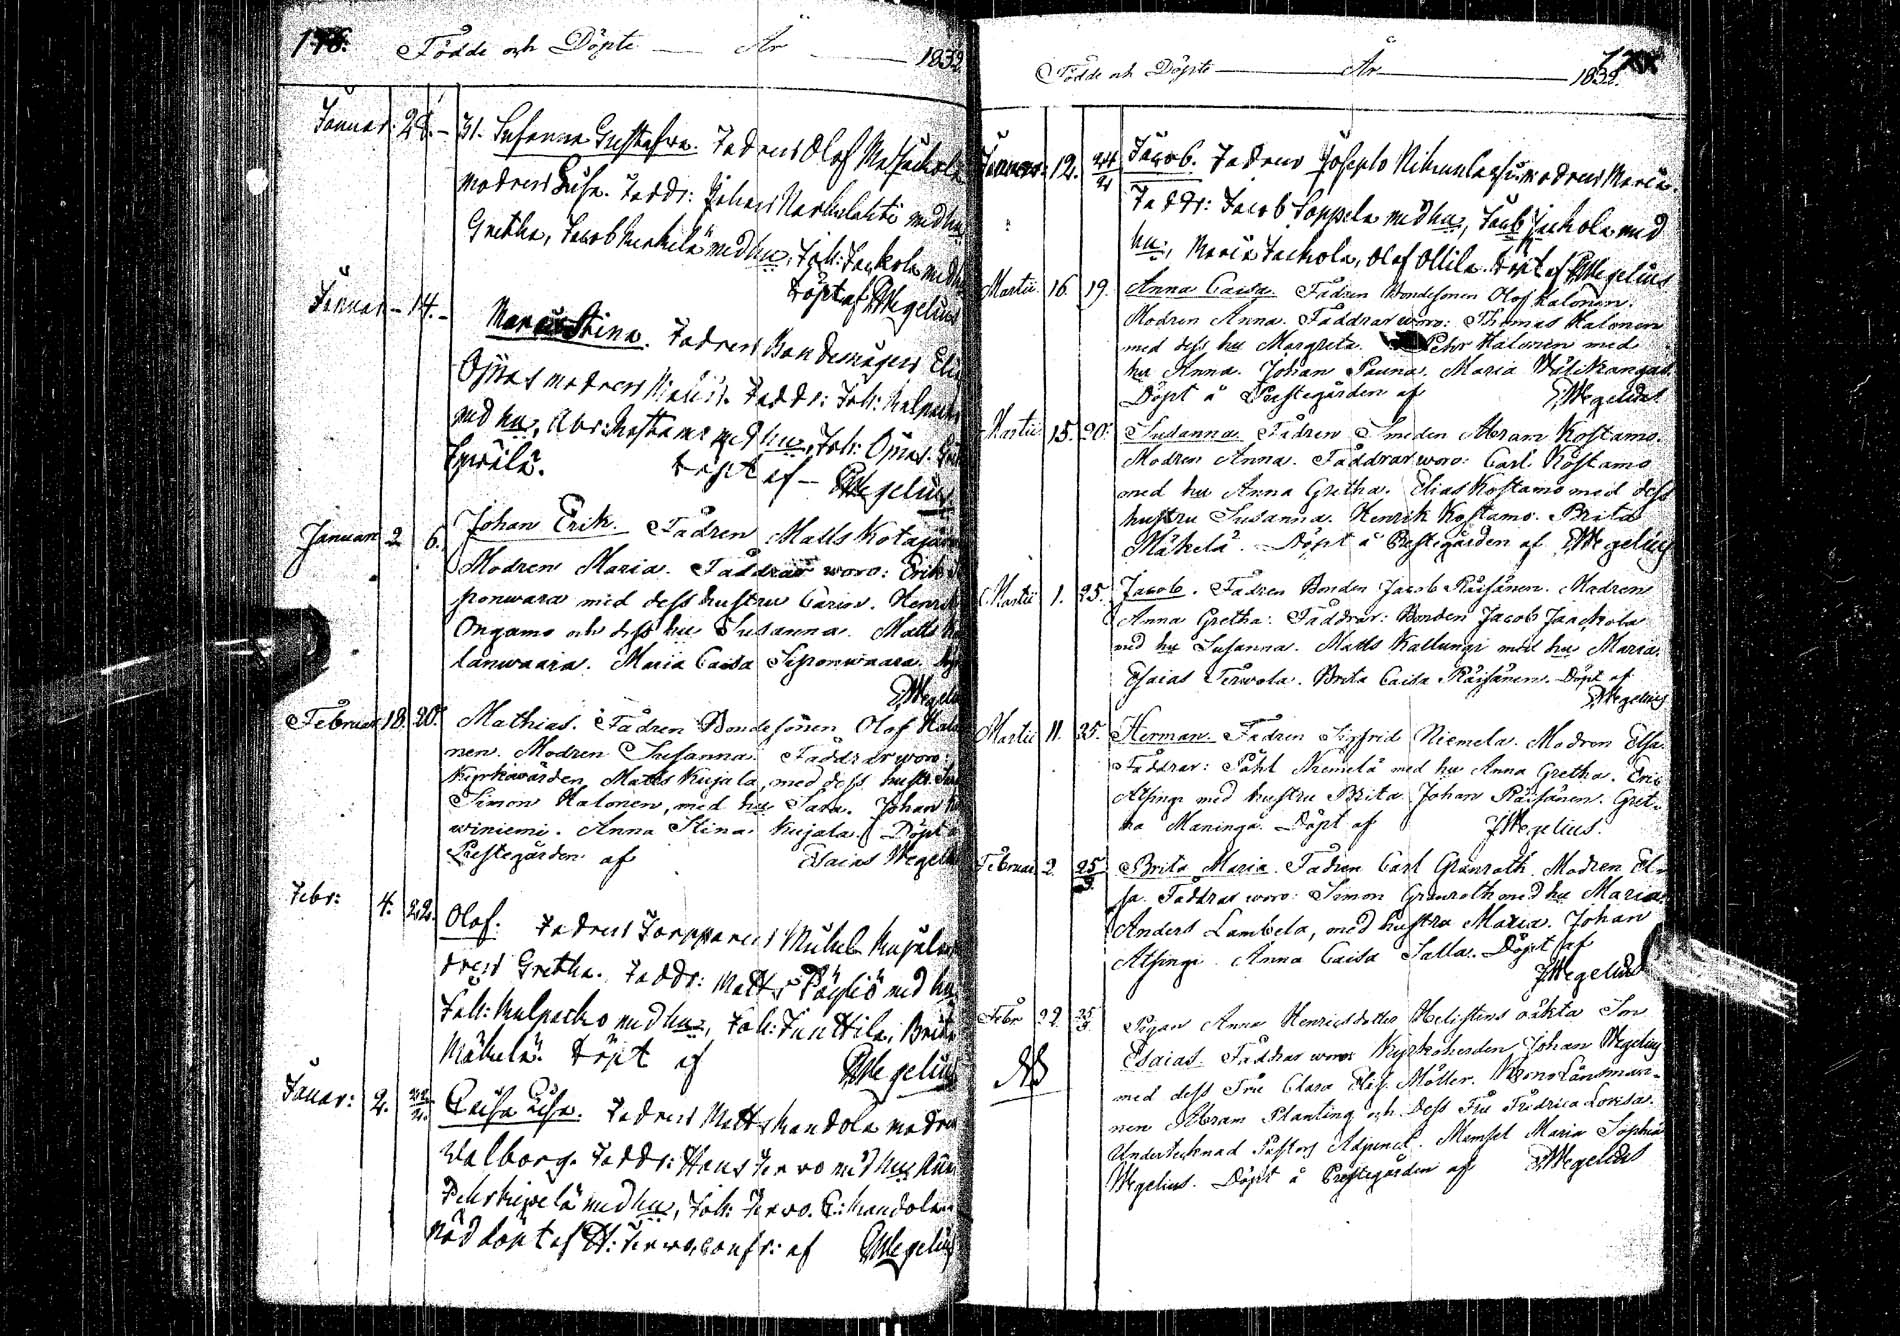 Födde och Döpte — År — 1832
Januar: 28. – 31. Susanna Gustafva. Fadren Olof
modren Lisa. Faddr: Johan Narkelahti med hu
Gretha, Jacob Merkilä med hu, Joh: Jackola med hu
Döpt af EWegelius
Januar – 14. – Maria Stina. Fadren Bondemågen Elias
Ojnas modren Maria. Faddr: Joh: Kulpacko
med hu, Abr: Kostamo med hu, Joh: Ojnas.
Döpt af – EWegelius
Januari 2 6. Johan Erik. Fadren Matts Kotajär
Modren Maria. Faddrar woro: Erik
ponwara med dess hustru Carin. Henrik
Ongamo och dess hu Susanna. Matts
lanwaara. Maria Caisa Siponwaara.
EWegelius
Februar 18. 20. Mathias. Fadren Bondesonen Olof Halo
nen. Modren Susanna. Faddrar woro:
Kyrkiowärden Matts Kujala, med dess hustr.
Simon Halonen, med hu Sara. Johan
winiemi. Anna Stina Kujala. Döpt å
Prestegården af Esaias Wegelius
Febr: 4. 22. Olof. Fadren Torpparen Mickel
dren Gretha. Faddr: Matts Pöyliö med hu
Joh: Kulpacko med hu, Joh: Junttila, Brita
Mäkelä. Döpt af EWegelius
Januar: 2. 22/2. Caisa Lisa. Fadren Matts Kandola modren
Walborg. Faddr: Hans Jerwo med hu
med hu, Joh: Jerwo. C: Kandola
Nöddöpt af H: Jerwo, conf: af EWegelius
Födde och Döpte — År — 1832.
Januar: 12. 24/2 Jacob. Fadren Joseph modren Maria
Faddr: Jacob Soppela med hu, Jacob Jackola med
hu, Maria Jackola, Olof Ollila. Döpt af EWegelius
Martii 16. 19. Anna Caisa. Fadren Bondesonen Olof Halonen.
Modren Anna. Faddrar woro: Thomas Halonen
med dess hu Margreta. Petter Halonen med
hu Anna. Johan Pauna. Maria Wälikangas.
Döpt å Prestegården af EWegelius
Martii 15. 20. Susanna. Fadren Smeden Abram Kostamo.
Modren Anna. Faddrar woro: Carl Kostamo
med hu Anna Gretha. Elias Kostamo med dess
hustru Susanna. Henrik Kostamo. Brita
Mäkelä. Döpt å Prestegården af EWegelius
Martii 1. 25. Jacob. Fadren Bonden Jacob Räisänen. Modren
Anna Gretha. Faddrar: Bonden Jacob Jaackola
med hu Susanna. Matts Kallungi med hu Maria.
Esaias Terwola. Brita Caisa Räisänen. Döpt af
EWegelius
Martii 11. 25. Herman. Fadren Sigfrid Niemelä. Modren Elsa.
Faddrar: Påhl Niemelä med hu Anna Gretha. Eric
Atsingi med hustru Brita. Johan Räisänen. Gret-
ha Maninga. Döpt af JWegelius.
Februar 2. 25/3 Brita Maria. Fadren Carl Granroth. Modren El-
sa. Faddrar woro: Simon Granroth med hu Maria.
Anders Lambela, med hustru Maria. Johan
Atsingi. Anna Caisa Salla. Döpt af
JWegelius
Febr 22. 25/3 Pigan Anna Henricsdotter Helistens oäkta Son
NB Esaias. Faddrar woro: Kyrkoherden Johan Wegelius
med dess Fru Clara Elis. Möller. Kronolänsman-
nen Abram Planting och Dess Fru Fredrica Lovisa.
Undertecknad Pastors Adjunct. Mamsel Maria Sophia
Wegelius. Döpt å Prestegården af EWegelius